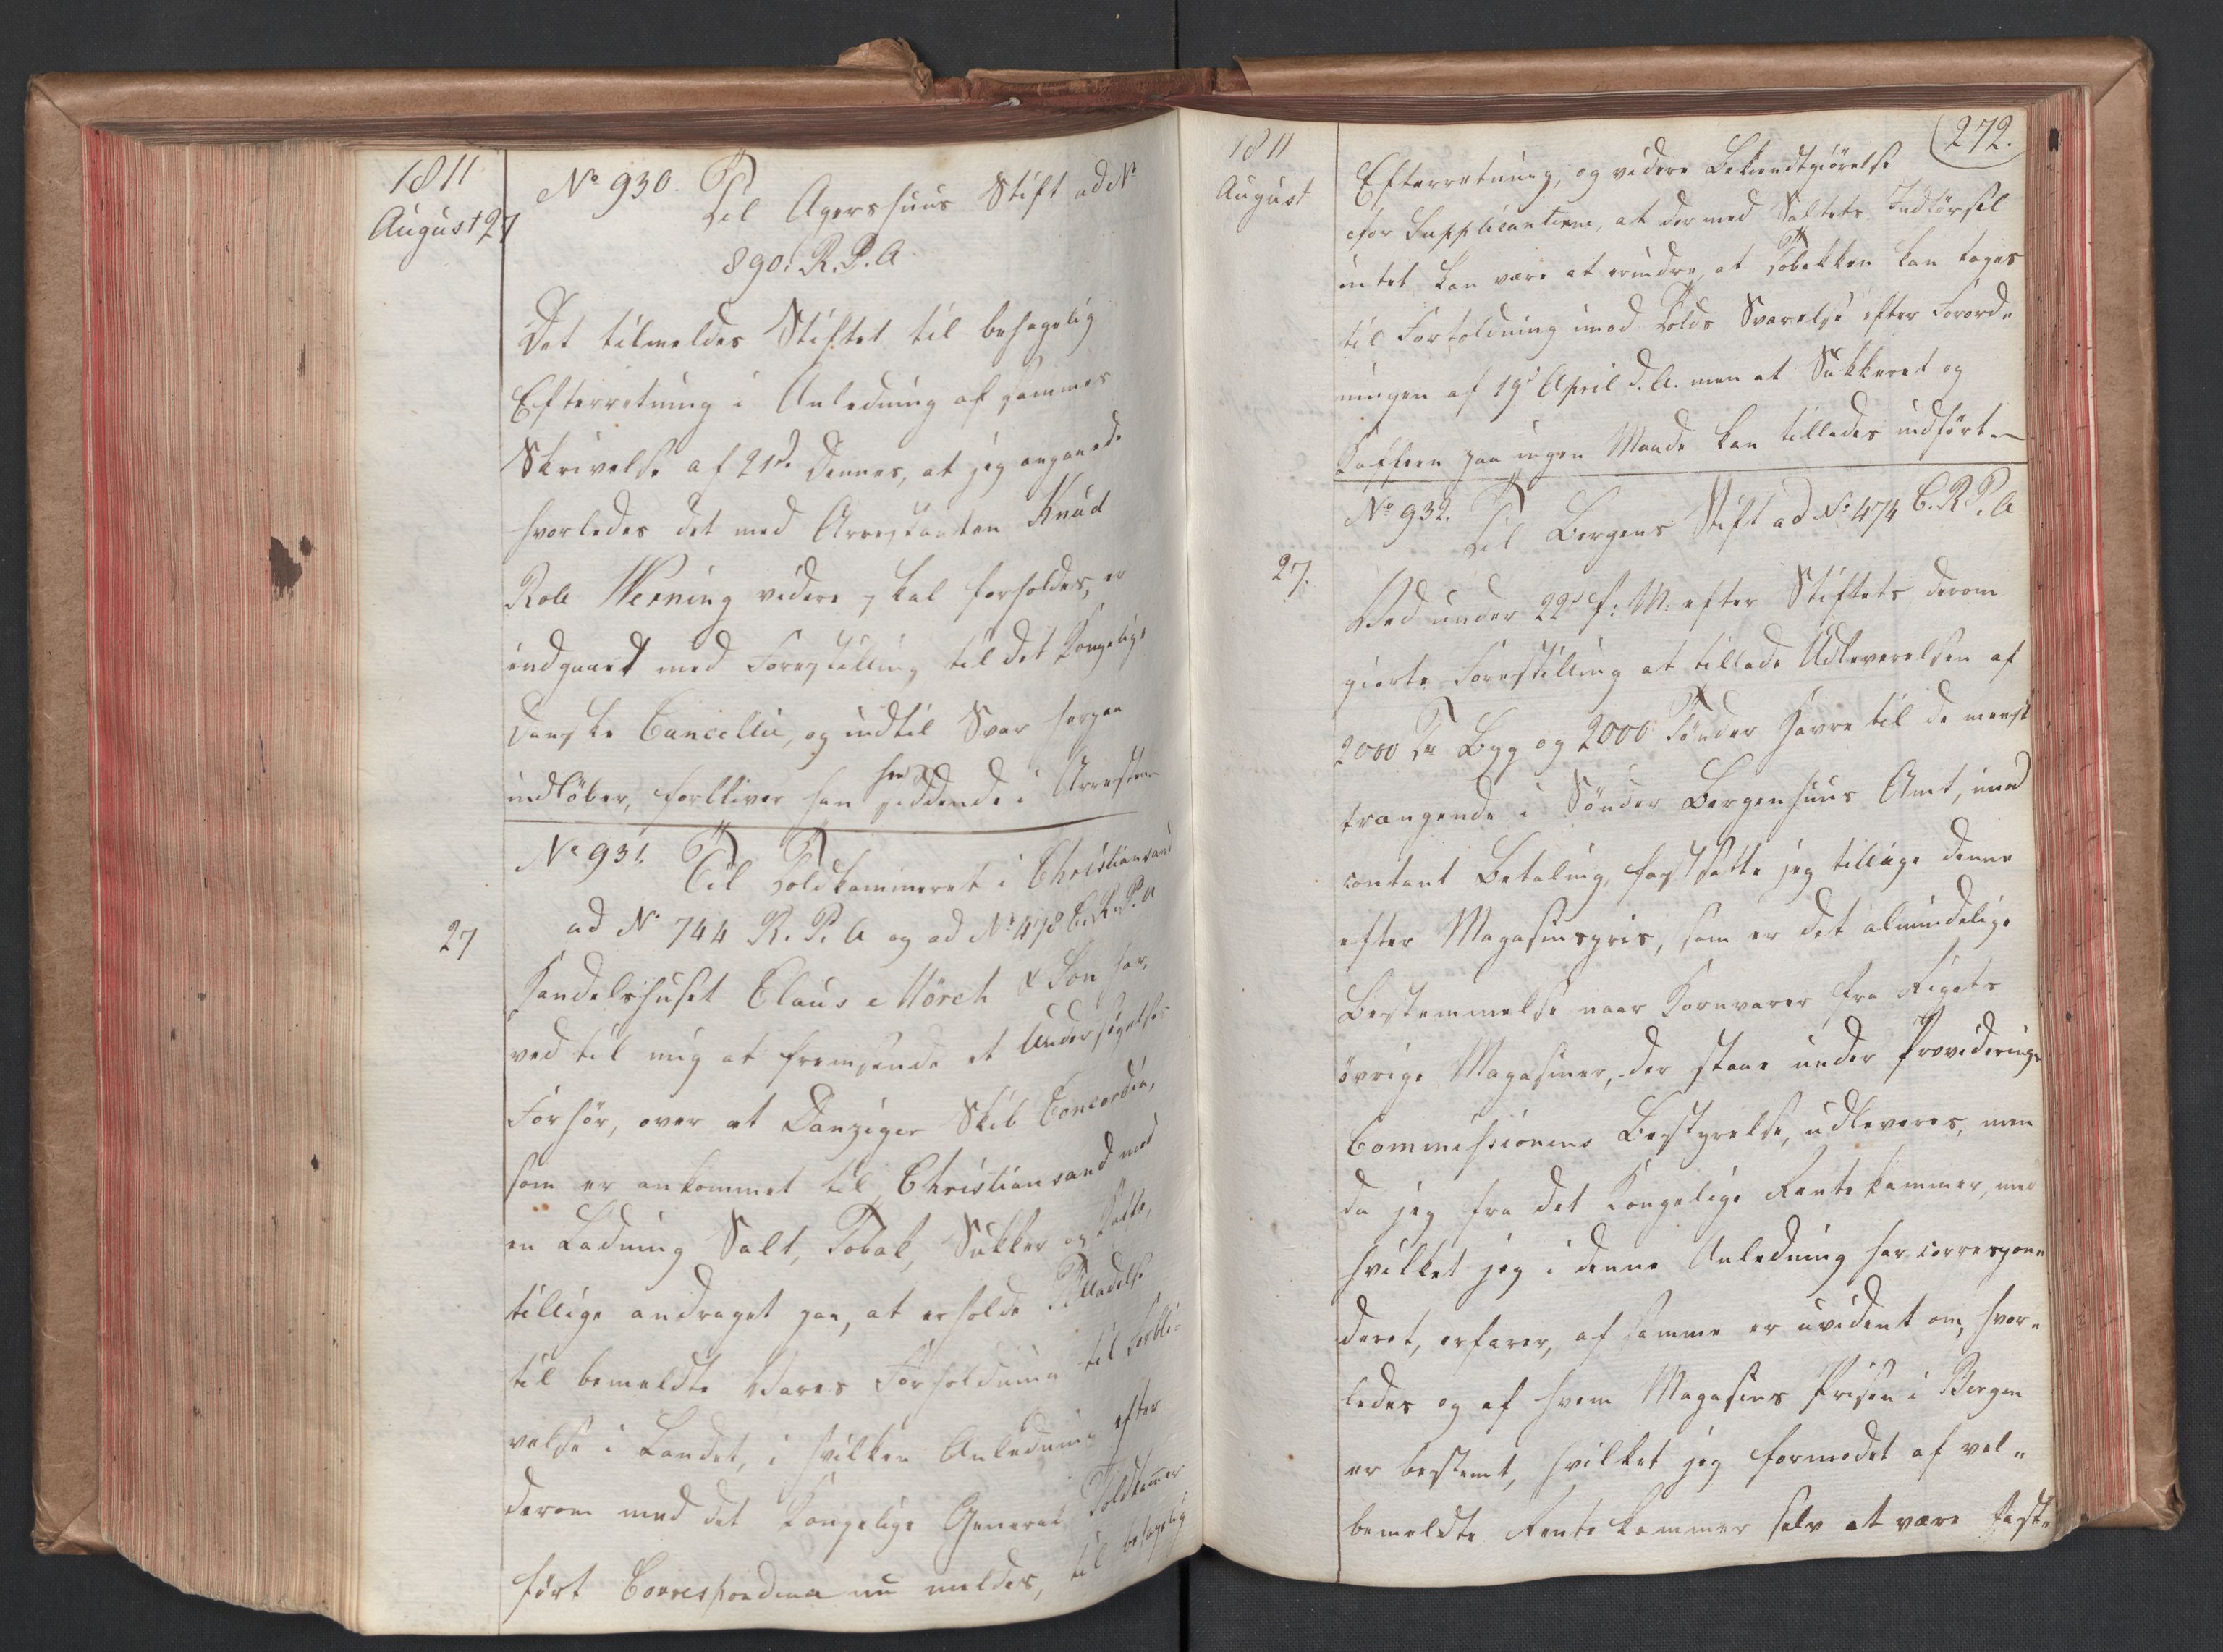 1811
August 27
No 930.
Til Agershuus Stift ad No
890. R. P. A
Det tilmeldes Stiftet til behagelig
Efterretning i Anledning af sammes
Skrivelse af 21de dennes, at jeg angaaende
hvorledes det med Arrestanten Knud
Role Werning videre skal forholdes, er
indgaaet med Forestilling til det Kongelige
danske Cancellie, og indtil Svar herpaa
indløber, forbliver han hen siddende i Arresten
No 931.
Til Toldkammeret i Christiansand
ad No 744 R. P. A og ad No 478 C. R. P. A
27
Handelshuset Claus Mörch & Son har,
ved til mig at fremsende et Undersøgelses
Forhör, over et Danziger Skib Concordia,
som er ankommet til Christiansand med
en Ladning Salt, Tobak, Sukker og Kaffe,
tillige andraget paa, at erholde Tilladelse
til bemeldte Vares Fortoldning til Forbli-
velse i Landet, i hvilken Anledning efter
derom med det Kongelige General Toldkammer
fört Correspondence nu meldes, til behagelig
1811
August
272.
Efterretning, og videre Bekiendtgiörelse
for Supplicanterne, at der med Saltets Indförsel
intet kan være at erindre, at Tobakken kan tages
til Fortoldning imod Tolds Svarelse efter Forord-
ningen af 19de April d. A. men at Sukkeret og
Kaffeen paa ingen Maade kan tillades indfört.
No 932.
Til Bergens Stift ad No 474 C. R. P. A
27.
Ved under 22de f: M: efter Stiftets derom
giorte Forestilling at tillade Udleverelsen af
2000 Tr Byg og 2000 Tönder Havre til de meest
trængende i Sönder Bergenhuus Amt, imod
contant Betaling, fastsatte jeg tillige denne
efter Magasinspris, som er det almindelige
Bestemmelse naar Kornvarer fra Rigets
övrige Magasiner, der staae under Provideerings
Commissionens Bestyrelse, udleveres, men
da jeg fra det Kongelige Rentekammer, med
hvilket jeg i denne Anledning har correspon-
deret, erfarer, at samme er uvidende om, hvor-
ledes og af hvem Magasins Prisen i Bergen
er bestemt, hvilket jeg formodet af vel-
bemeldte Rentekammer selv at være fast-